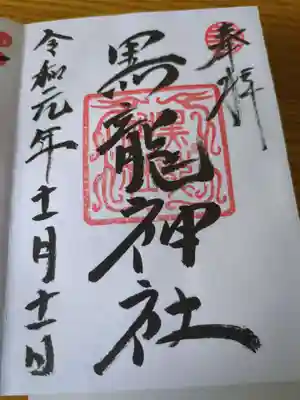 奉拝
黒龍神社
令和元年十一月十一日